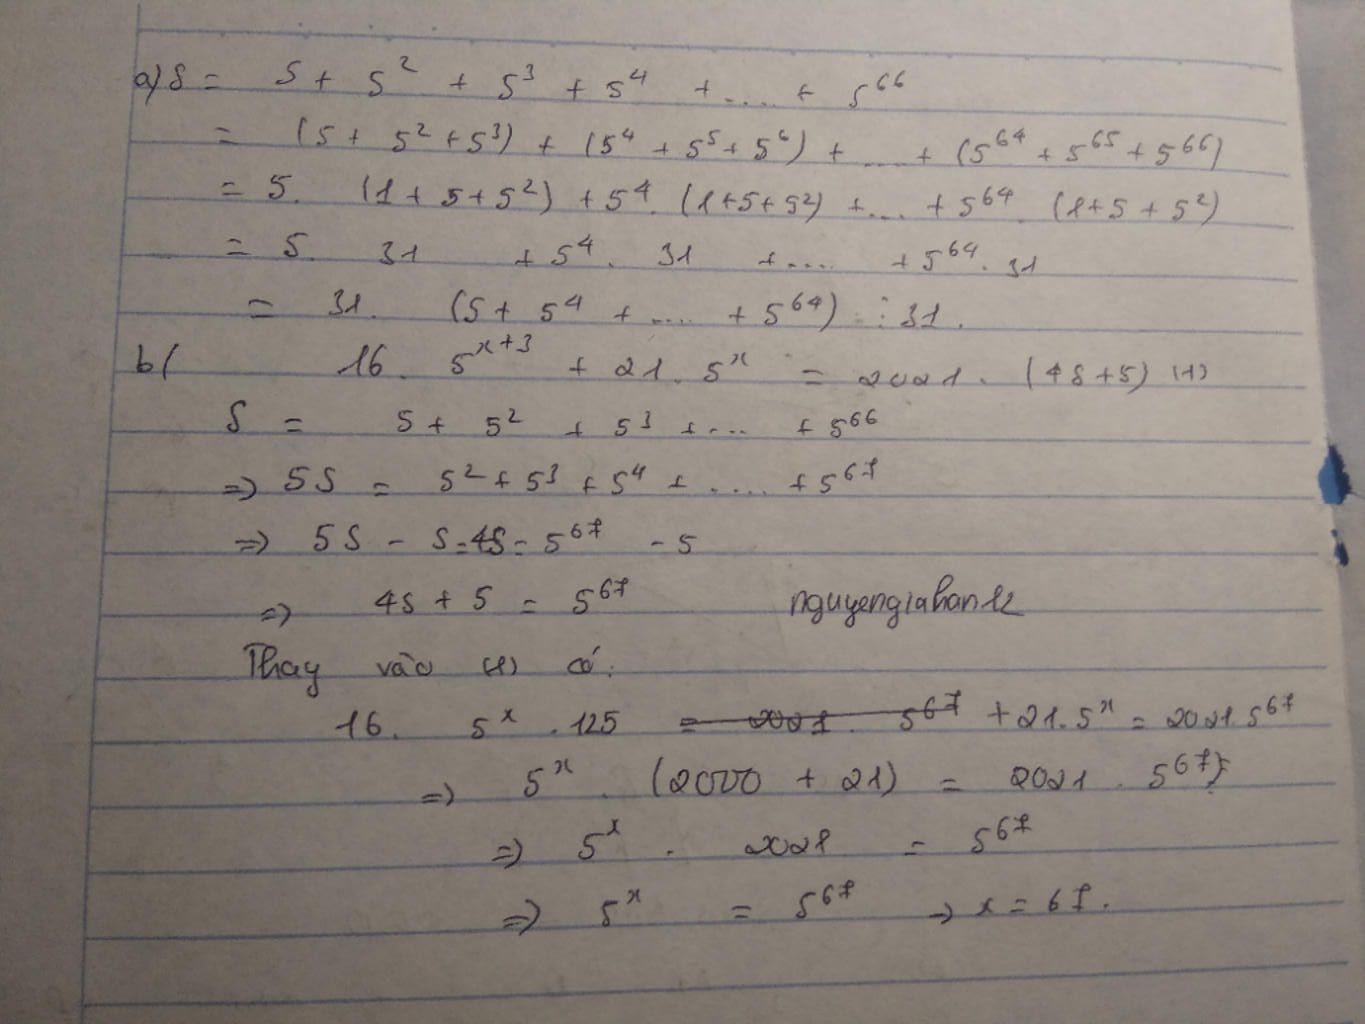 a) S = 5 + 5² + 5³ + 5⁴ + .... + 5⁶⁶
= (5 + 5² + 5³) + (5⁴ + 5⁵ + 5⁶) + .... + (5⁶⁴ + 5⁶⁵ + 5⁶⁶)
= 5. (1 + 5 + 5²) + 5⁴. (1 + 5 + 5²) + .... + 5⁶⁴. (1 + 5 + 5²)
= 5. 31 + 5⁴. 31 + .... + 5⁶⁴. 31
= 31. (5 + 5⁴ + .... + 5⁶⁴) ⋮ 31.
b) 16. 5ˣ⁺³ + 21. 5ˣ = 2021. (4S + 5) (1)
S = 5 + 5² + 5³ + .... + 5⁶⁶
=> 5S = 5² + 5³ + 5⁴ + .... + 5⁶⁷
=> 5S - S = 4S = 5⁶⁷ - 5
=> 4S + 5 = 5⁶⁷ nguyengiahan12
Thay vào (1) có:
16. 5ˣ. 125 = 2021. 5⁶⁷ + 21. 5ˣ = 2021. 5⁶⁷
=> 5ˣ. (2000 + 21) = 2021. 5⁶⁷
=> 5ˣ. 2021 = 5⁶⁷
=> 5ˣ = 5⁶⁷ -> x = 67.